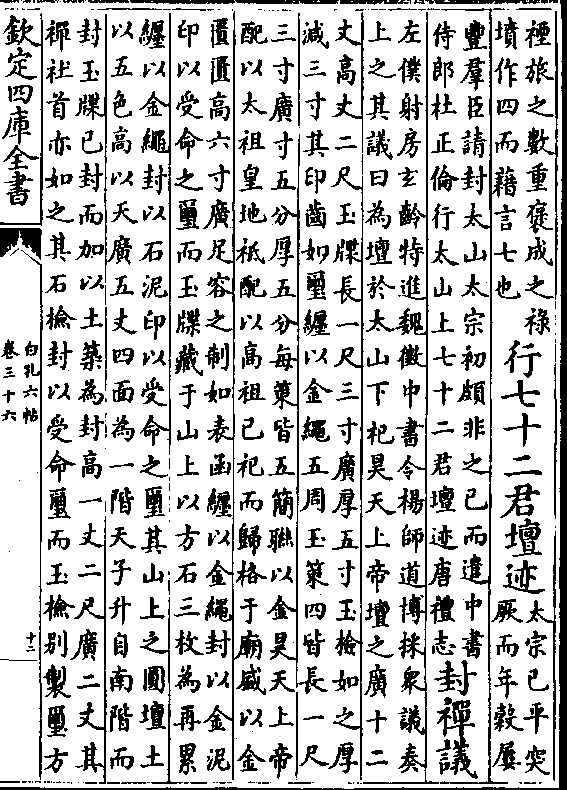 禋旅之數重襃成之祿
墳作四而藉言七也
行七十二君壇迹
太宗已平突
厥而年穀屢
豐羣臣請封太山太宗初頗非之已而遣中書
侍郎杜正倫行太山上七十二君壇迹唐禮志
封禪議
左僕射房玄齡特進魏徵中書令楊師道博採衆議奏
上之其議曰為壇於太山下祀昊天上帝壇之廣十二
丈高丈二尺玉牒長一尺三寸廣厚五寸玉檢如之厚
減三寸其印齒如璽纏以金繩五周玉策四皆長一尺
三寸廣寸五分厚五分每策皆五簡聯以金昊天上帝
配以太祖皇地祇配以高祖已祀而歸格于廟盛以金
匱匱高六寸廣足容之制如表函纏以金繩封以金泥
印以受命之璽而玉牒藏于山上以方石三枚為再累
纏以金繩封以石泥印以受命之璽其山上之圜壇土
以五色高以天廣五丈四面為一階天子升自南階而
封玉牒已封而加以土築為封高一丈二尺廣二丈其
禪社首亦如之其石檢封以受命璽而玉檢別製璽方
欽定四庫全書
白孔六帖
卷三十六
十二